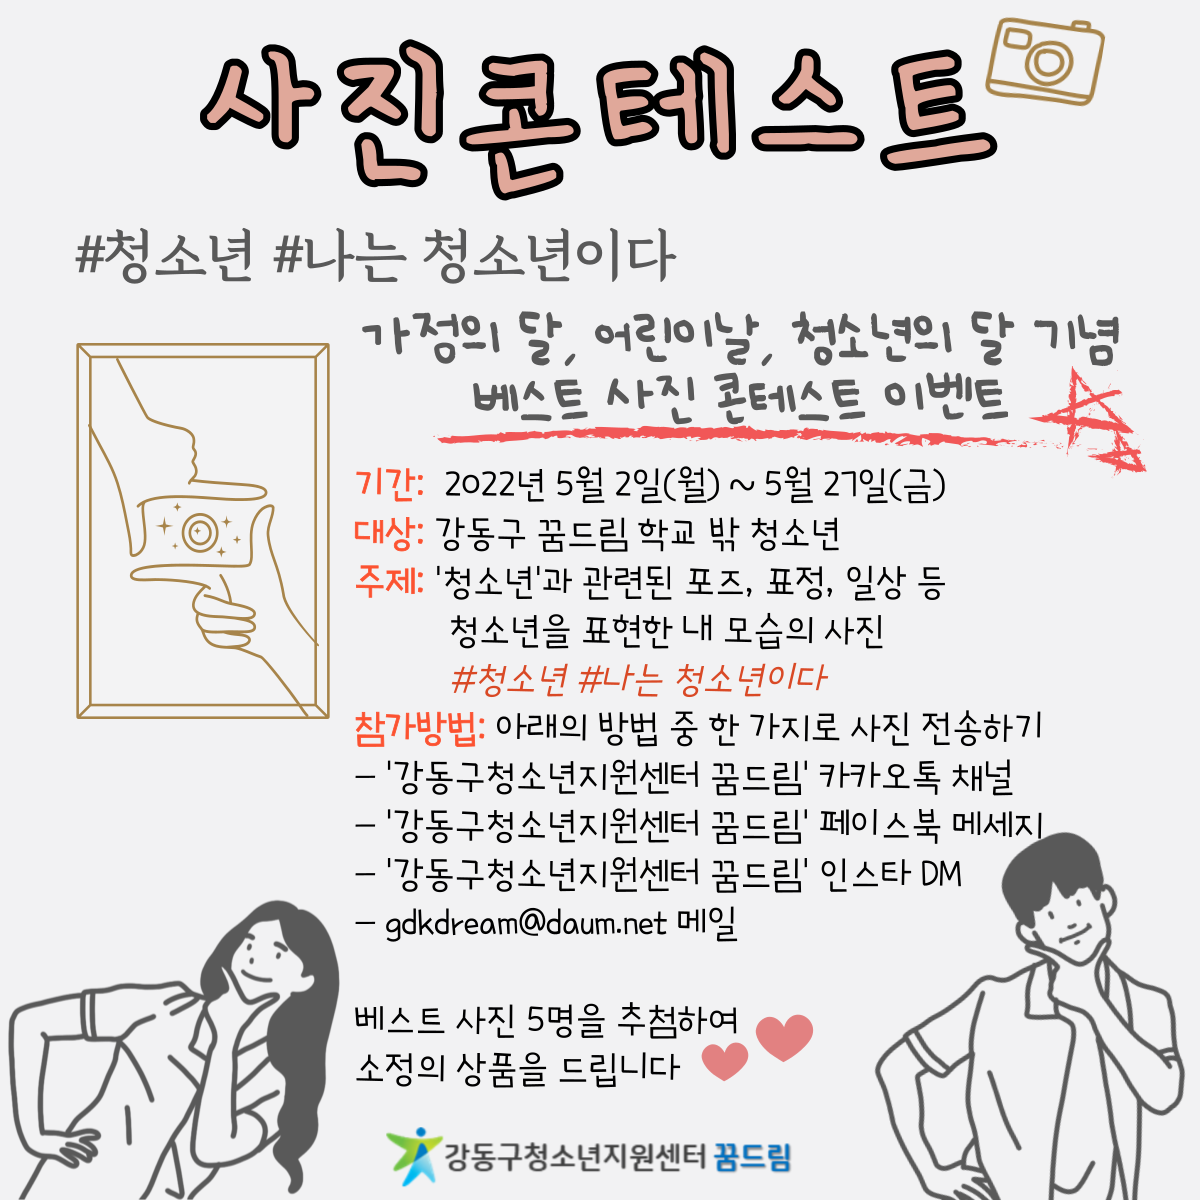 사진콘테스트
#청소년 #나는 청소년이다
가정의 달, 어린이날, 청소년의 달 기념
베스트 사진 콘테스트 이벤트
기간: 2022년 5월 2일(월) ~ 5월 27일(금)
대상: 강동구 꿈드림 학교 밖 청소년
주제: '청소년'과 관련된 포즈, 표정, 일상 등
청소년을 표현한 내 모습의 사진
#청소년 #나는 청소년이다
참가방법: 아래의 방법 중 한 가지로 사진 전송하기
– '강동구청소년지원센터 꿈드림' 카카오톡 채널
– '강동구청소년지원센터 꿈드림' 페이스북 메세지
– '강동구청소년지원센터 꿈드림' 인스타 DM
– gdkdream@daum.net 메일
베스트 사진 5명을 추첨하여
소정의 상품을 드립니다
강동구청소년지원센터 꿈드림